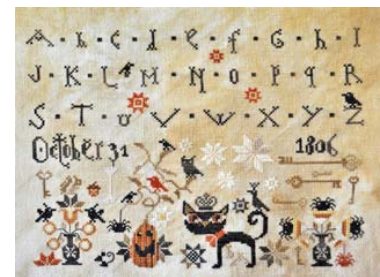 A · b · c · d · e · f · G · h · I
J · K · L · M · N · O · P · q · R
S · T · U · V · W · X · Y · Z
October 31 1806